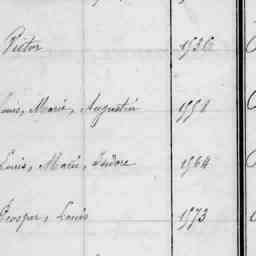 Victor 1936
Louis, Marie, Augustin 1951
Louis, Marie, Isidore 1964
Prosper, Louis 1973